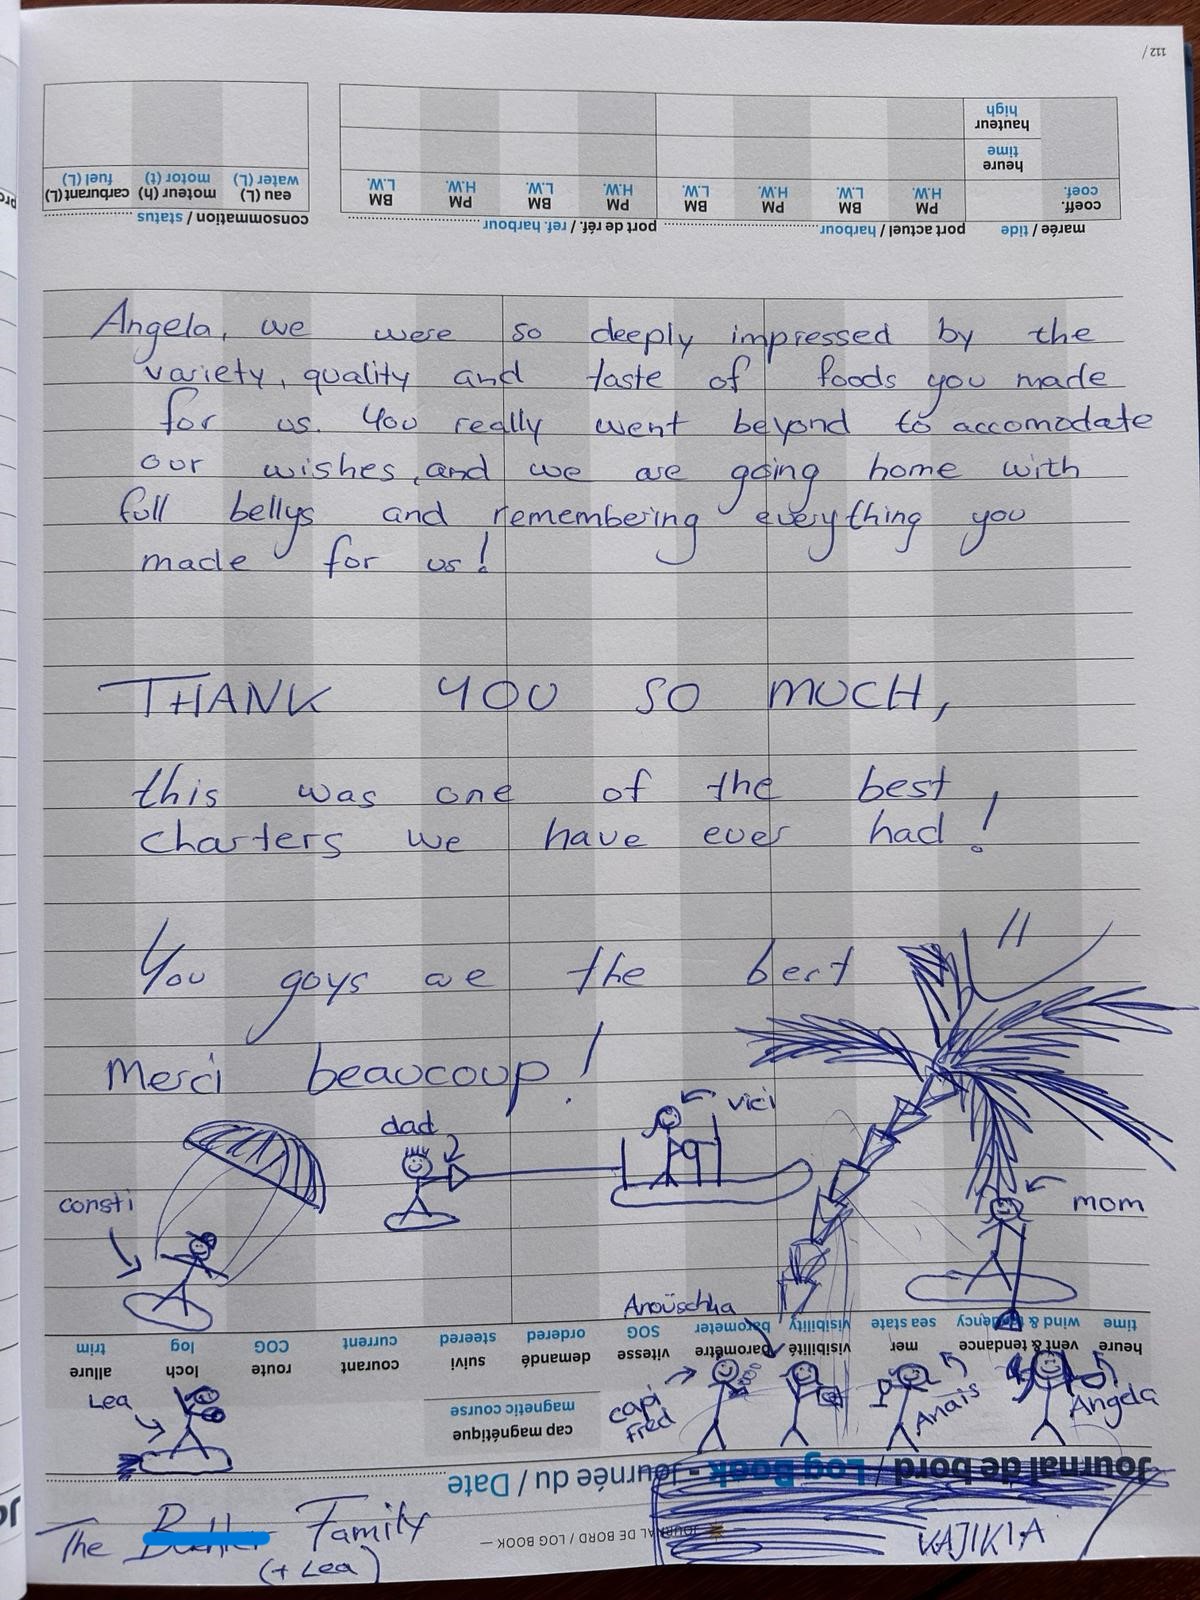 112 /
hauteur
high
heure
time
coeff.
coef.
PM
H.W.
BM
L.W.
PM
H.W.
BM
L.W.
PM
H.W.
BM
L.W.
PM
H.W.
BM
L.W.
eau (L)
water (L)
moteur (h)
motor (t)
carburant (L)
fuel (L)
marée / tide
port actuel / harbour
port de réf. / ref. harbour
consommation / status
Angela, we were so deeply impressed by the
variety, quality and taste of foods you made
for us. You really went beyond to accomodate
our wishes, and we are going home with
full bellys and remembering everything you
made for us!
THANK YOU SO MUCH,
this was one of the best
charters we have ever had!
You guys are the best
Merci beaucoup!
dad
vici
consti
mom
Anouschka
heure
time
vent & tendance
wind & tendency
mer
sea state
visibilité
visibility
baromètre
barometer
vitesse
SOG
demandé
ordered
suivi
steered
courant
current
route
COG
loch
log
allure
trim
cap magnétique
magnetic course
Lea
capi
Fred
Anais
Angela
Journal de bord / Log Book - Journée du / Date
JOURNAL DE BORD / LOG BOOK —
The Family
(+ Lea)
VAJIKIA